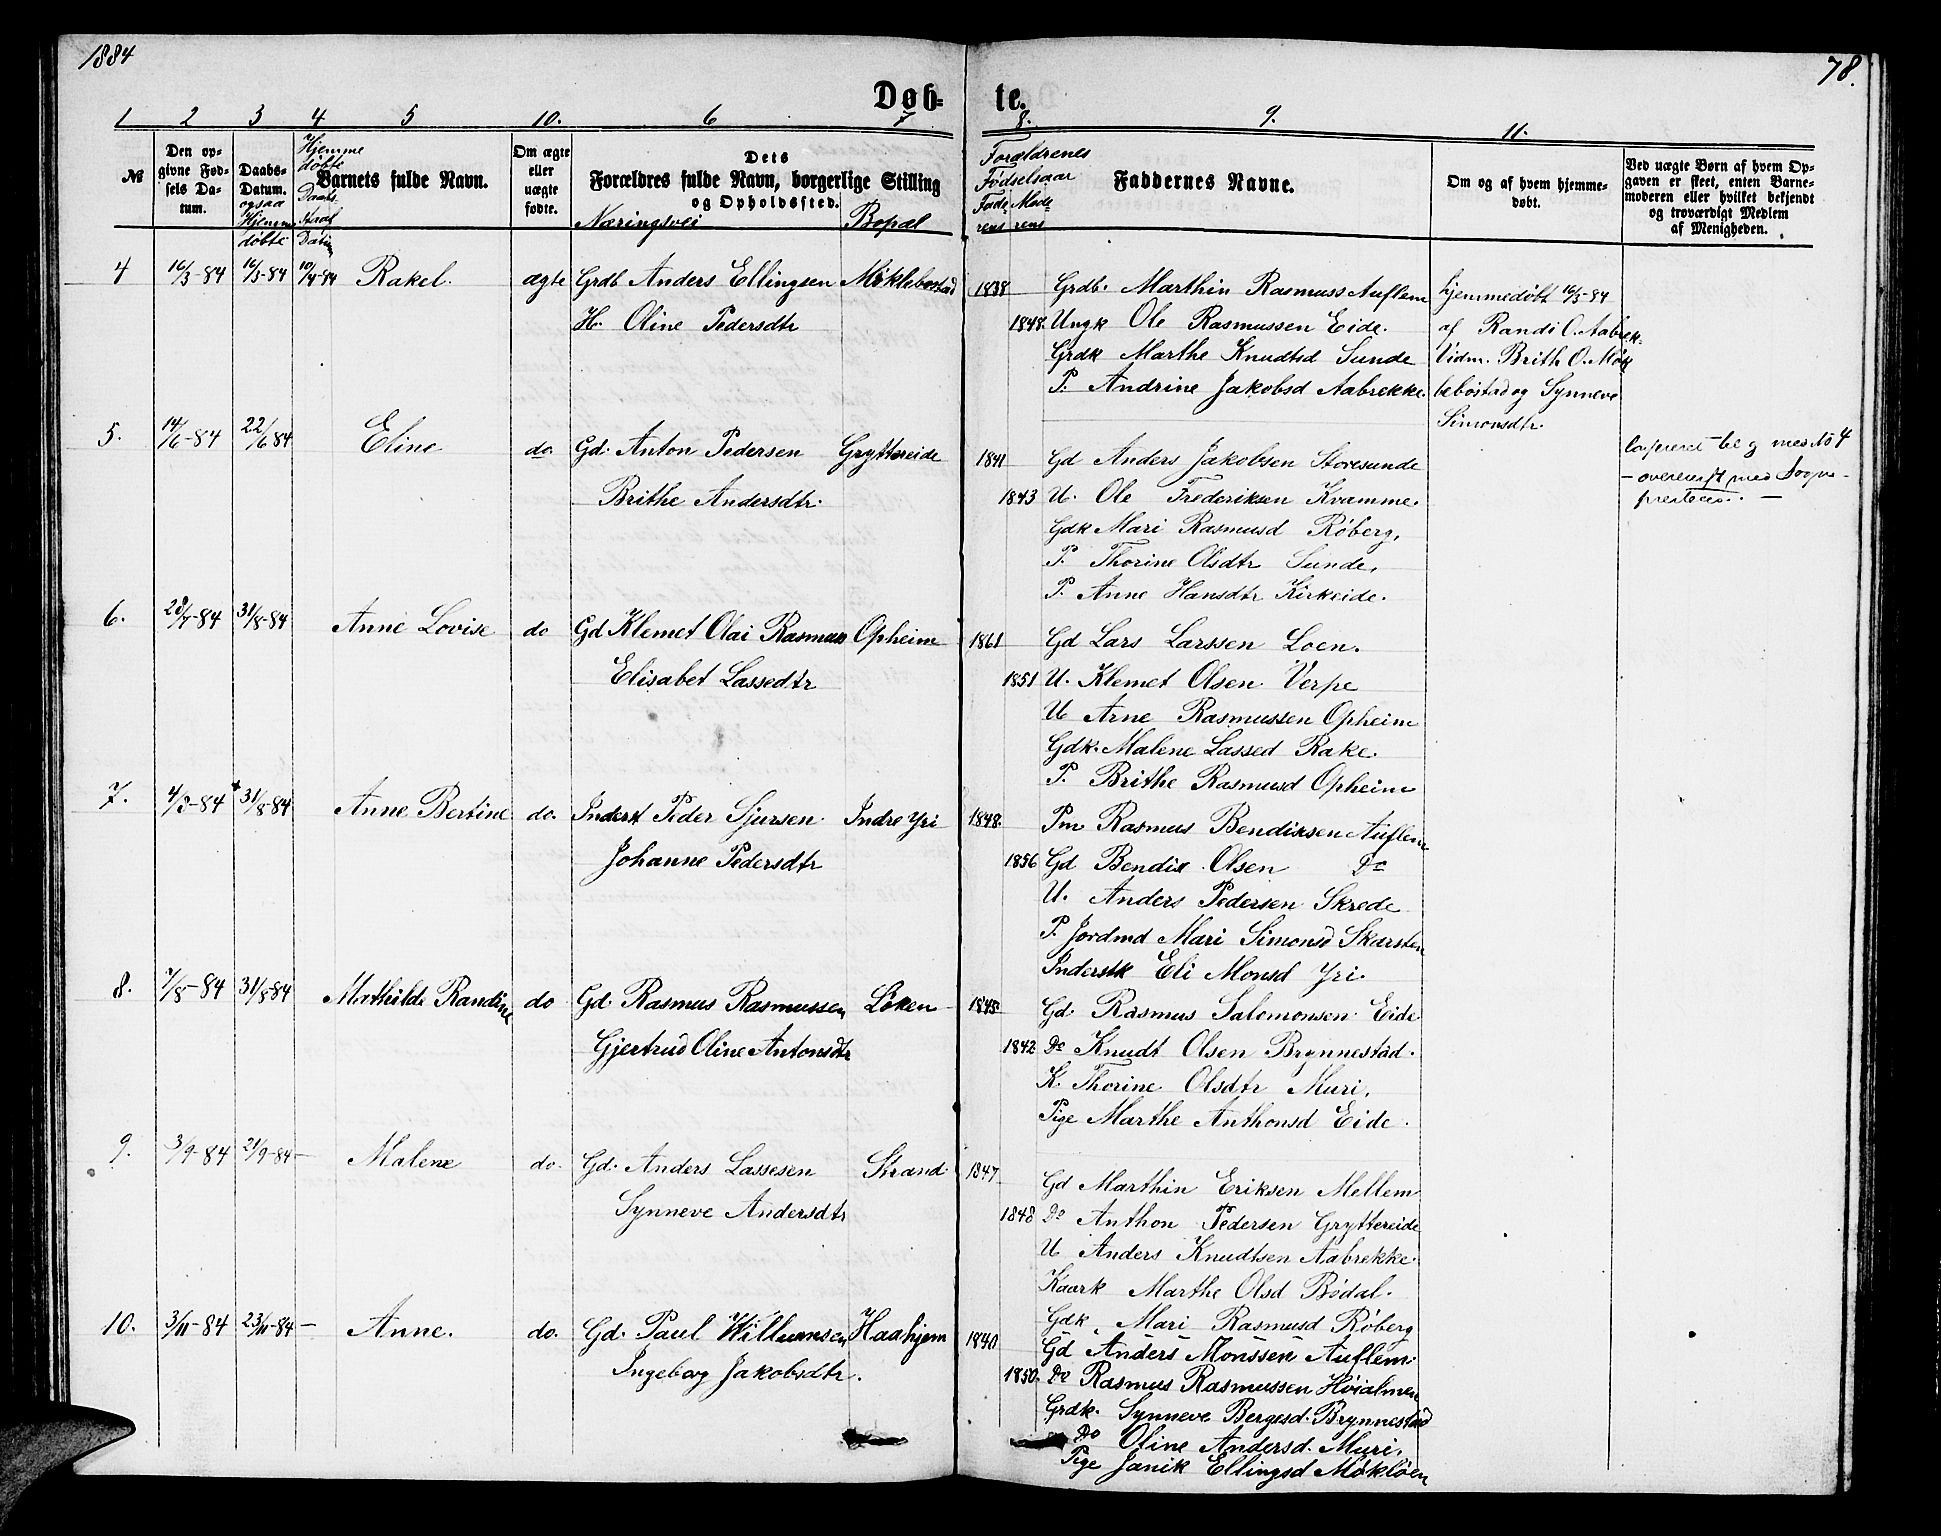 1884
78.
Døb-
te.
1 2 3 4 5 10. 6 7 8. 9. 11.
№
Den op-
givne Fød-
sels Da-
tum.
Daabs-
Datum.
ogsaa
Hjemme
døbte
Hjemme
døbte
Daabs
Stadf
Datum
Barnets fulde Navn.
Om ægte
eller
uægte
fødte.
Dets
Forældres fulde Navn, borgerlige Stilling
og Opholdssted.
Næringsvei Bopæl
Forældrenes
Fødselsaar
Fade- Mode-
rens rens
Faddernes Navne.
Om og af hvem hjemme-
døbt.
Ved uægte Børn af hvem Op-
gaven er skeet, enten Barne-
moderen eller hvilket bekjendt
og troværdigt Medlem
af Menigheden.
4 16/3-84 16/3-84 10/4-84 Rakel. ægte Grdb Anders Ellingsen Møklebostad
H. Oline Pedersdtr
1838 Grdb. Marthin Rasmuss Auflem
1848. Ungk Ole Rasmussen Eide.
Grdk Marthe Knudtsd Sunde
P. Andrine Jakobsd Aabrekke.
hjemmedøbt 16/3-84
af Randi O. Aabrek-
Vidm. Brith O. Møk
lebostad og Synneve
Simonsdtr.
5. 14/6-84 22/6 84 Eline do. Gd. Anton Pedersen Gryttereide
Brithe Andersdtr.
1841 Gd Anders Jakobsen Storesunde
1843 U. Ole Frederiksen Kvamme.
Gdk Mari Rasmusd Røberg,
P. Thorine Olsdtr Sunde,
P. Anne Hansdtr Kirkeide.
til og med No 4
med Sogne-
6. 28/7-84 31/8-84 Anne Lovise do Gd Klemet Olai Rasmuss Opheim
Elisabet Lassedtr
1861 Gd Lars Larssen Loen.
1851 U. Klemet Olsen Verpe
U Arne Rasmussen Opheim
Gdk. Malene Lassed Rake.
P. Brithe Rasmusd Opheim
7. 4/8-84 31/8-84 Anne Bertine do. Inderst Peder Sjursen Indre Yri
Johanne Pedersdtr
1848. Pm Rasmus Bendiksen Auflem
1856 Gd Bendix Olsen Do
U. Anders Pedersen Skrede
P. Jordmd Mari Simonsd Skarsten
Inderstk Eli Monsd Yri.
8. 7/8-84 31/8-84 Mathilde Randine do Gd. Rasmus Rasmussen Løken
Gjertrud Oline Antonsdtr
1845. Gd. Rasmus Salomonsen Eide
1842 Do Knudt Olsen Brynnestad.
K. Thorine Olsdtr Muri,
Pige Marthe Anthonsd Eide.
9. 3/9-84 21/9-84 - Malene do. Gd. Anders Lassesen Strand
Synneve Andersdtr
1847 Gd Marthin Eriksen Mellem
1848 Do Anthon Pedersen Gryttereide
U Anders Knudtsen Aabrekke.
Kaark Marthe Olsd Bødal.
Gdk, Mari Rasmusd Røberg
10. 3/11-84 23/11-84 - Anne. do. Gd. Paul Willumsen Haahjem
Ingeborg Jakobsdtr.
1840 Gd Anders Monssen Auflem.
1850. Do Rasmus Rasmussen Høialmen
Grdk. Synneve Bergesd. Brynnestad
Do Oline Andersd. Muri,
Pige Janik Ellingsd Møkløen